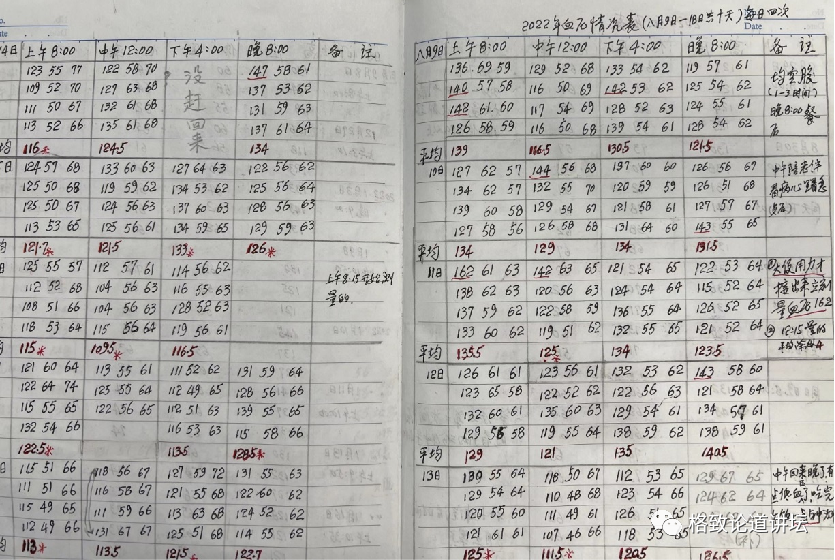 14日 上午8:00 中午12:00 下午4:00 晚8:00 备注
123 55 77 122 58 70 没赶回来 147 58 61
109 52 70 127 63 68 137 53 62
111 50 67 132 61 68 131 59 63
113 52 66 135 61 68 137 61 64
均 116 124.5 134
日 124 57 68 133 60 63 127 64 63 122 56 62
125 50 68 119 59 62 134 53 62 125 56 64
125 50 67 124 56 63 137 60 63 128 56 63
113 53 65 125 56 61 134 59 65 129 59 63
均 121.5 133 126
日 125 55 57 112 57 61 114 56 62
112 52 68 104 56 63 116 55 63
108 51 66 104 56 63 128 52 63
118 53 64 115 56 64 119 56 61
均 115 109.5 116.5
121 60 64 113 55 61 111 52 62 131 59 64
122 64 74 125 55 64 112 49 65 128 56 66
115 55 65 122 56 65 112 51 63 139 55 65
132 54 66 116 53 63 115 58 66
122.5 113.5 128.5
日 115 51 66 118 56 67 127 59 72 131 55 63
111 51 66 116 58 67 121 55 68 122 60 62
115 49 65 111 59 66 113 63 68 124 52 62
112 49 66 131 67 67 125 51 68 114 55 62
113 113.5 121.5 122.7
2022年血压情况表(八月9日—18日共十天)每日四次
Date
八月9日 上午8:00 中午12:00 下午4:00 晚8:00 备注
136 69 59 129 52 68 133 54 62 119 57 61
140 57 58 116 50 69 142 53 62 125 54 62
142 61 60 117 54 69 128 52 63 124 55 61
126 58 59 116 50 68 139 54 61 128 54 62
平均 139 116.5 130.5 121.5
10日 127 62 57 144 56 68 137 60 60 126 56 67
134 62 57 132 55 70 120 59 59 126 51 68
139 60 58 129 54 67 121 58 61 127 57 67
127 58 56 126 58 68 131 64 60 143 55 65
平均 134 129 134 131.5
11日 162 61 63 142 63 65 121 54 65 122 53 64
138 62 63 120 56 63 124 54 64 115 52 64
137 59 62 122 58 59 136 55 64 126 52 65
133 60 62 119 51 62 132 55 55 121 52 64
量血压162
平均 135.5 125 134 123.5
12日 126 61 61 123 56 61 132 53 62 143 58 60
123 65 58 122 52 62 122 56 63 121 58 64
132 60 61 135 60 63 129 54 61 134 57 61
129 56 58 119 55 64 138 59 62 138 59 61
平均 129 121 135 140.5
13日 130 55 64 118 50 67 112 53 65 129 67 65
129 54 64 110 48 68 123 54 66 124 62 64
120 55 60 111 49 61 126 51 65
121 61 61 107 46 66 118 53 65
125 111.5 120.5 126.5
格致论道讲坛